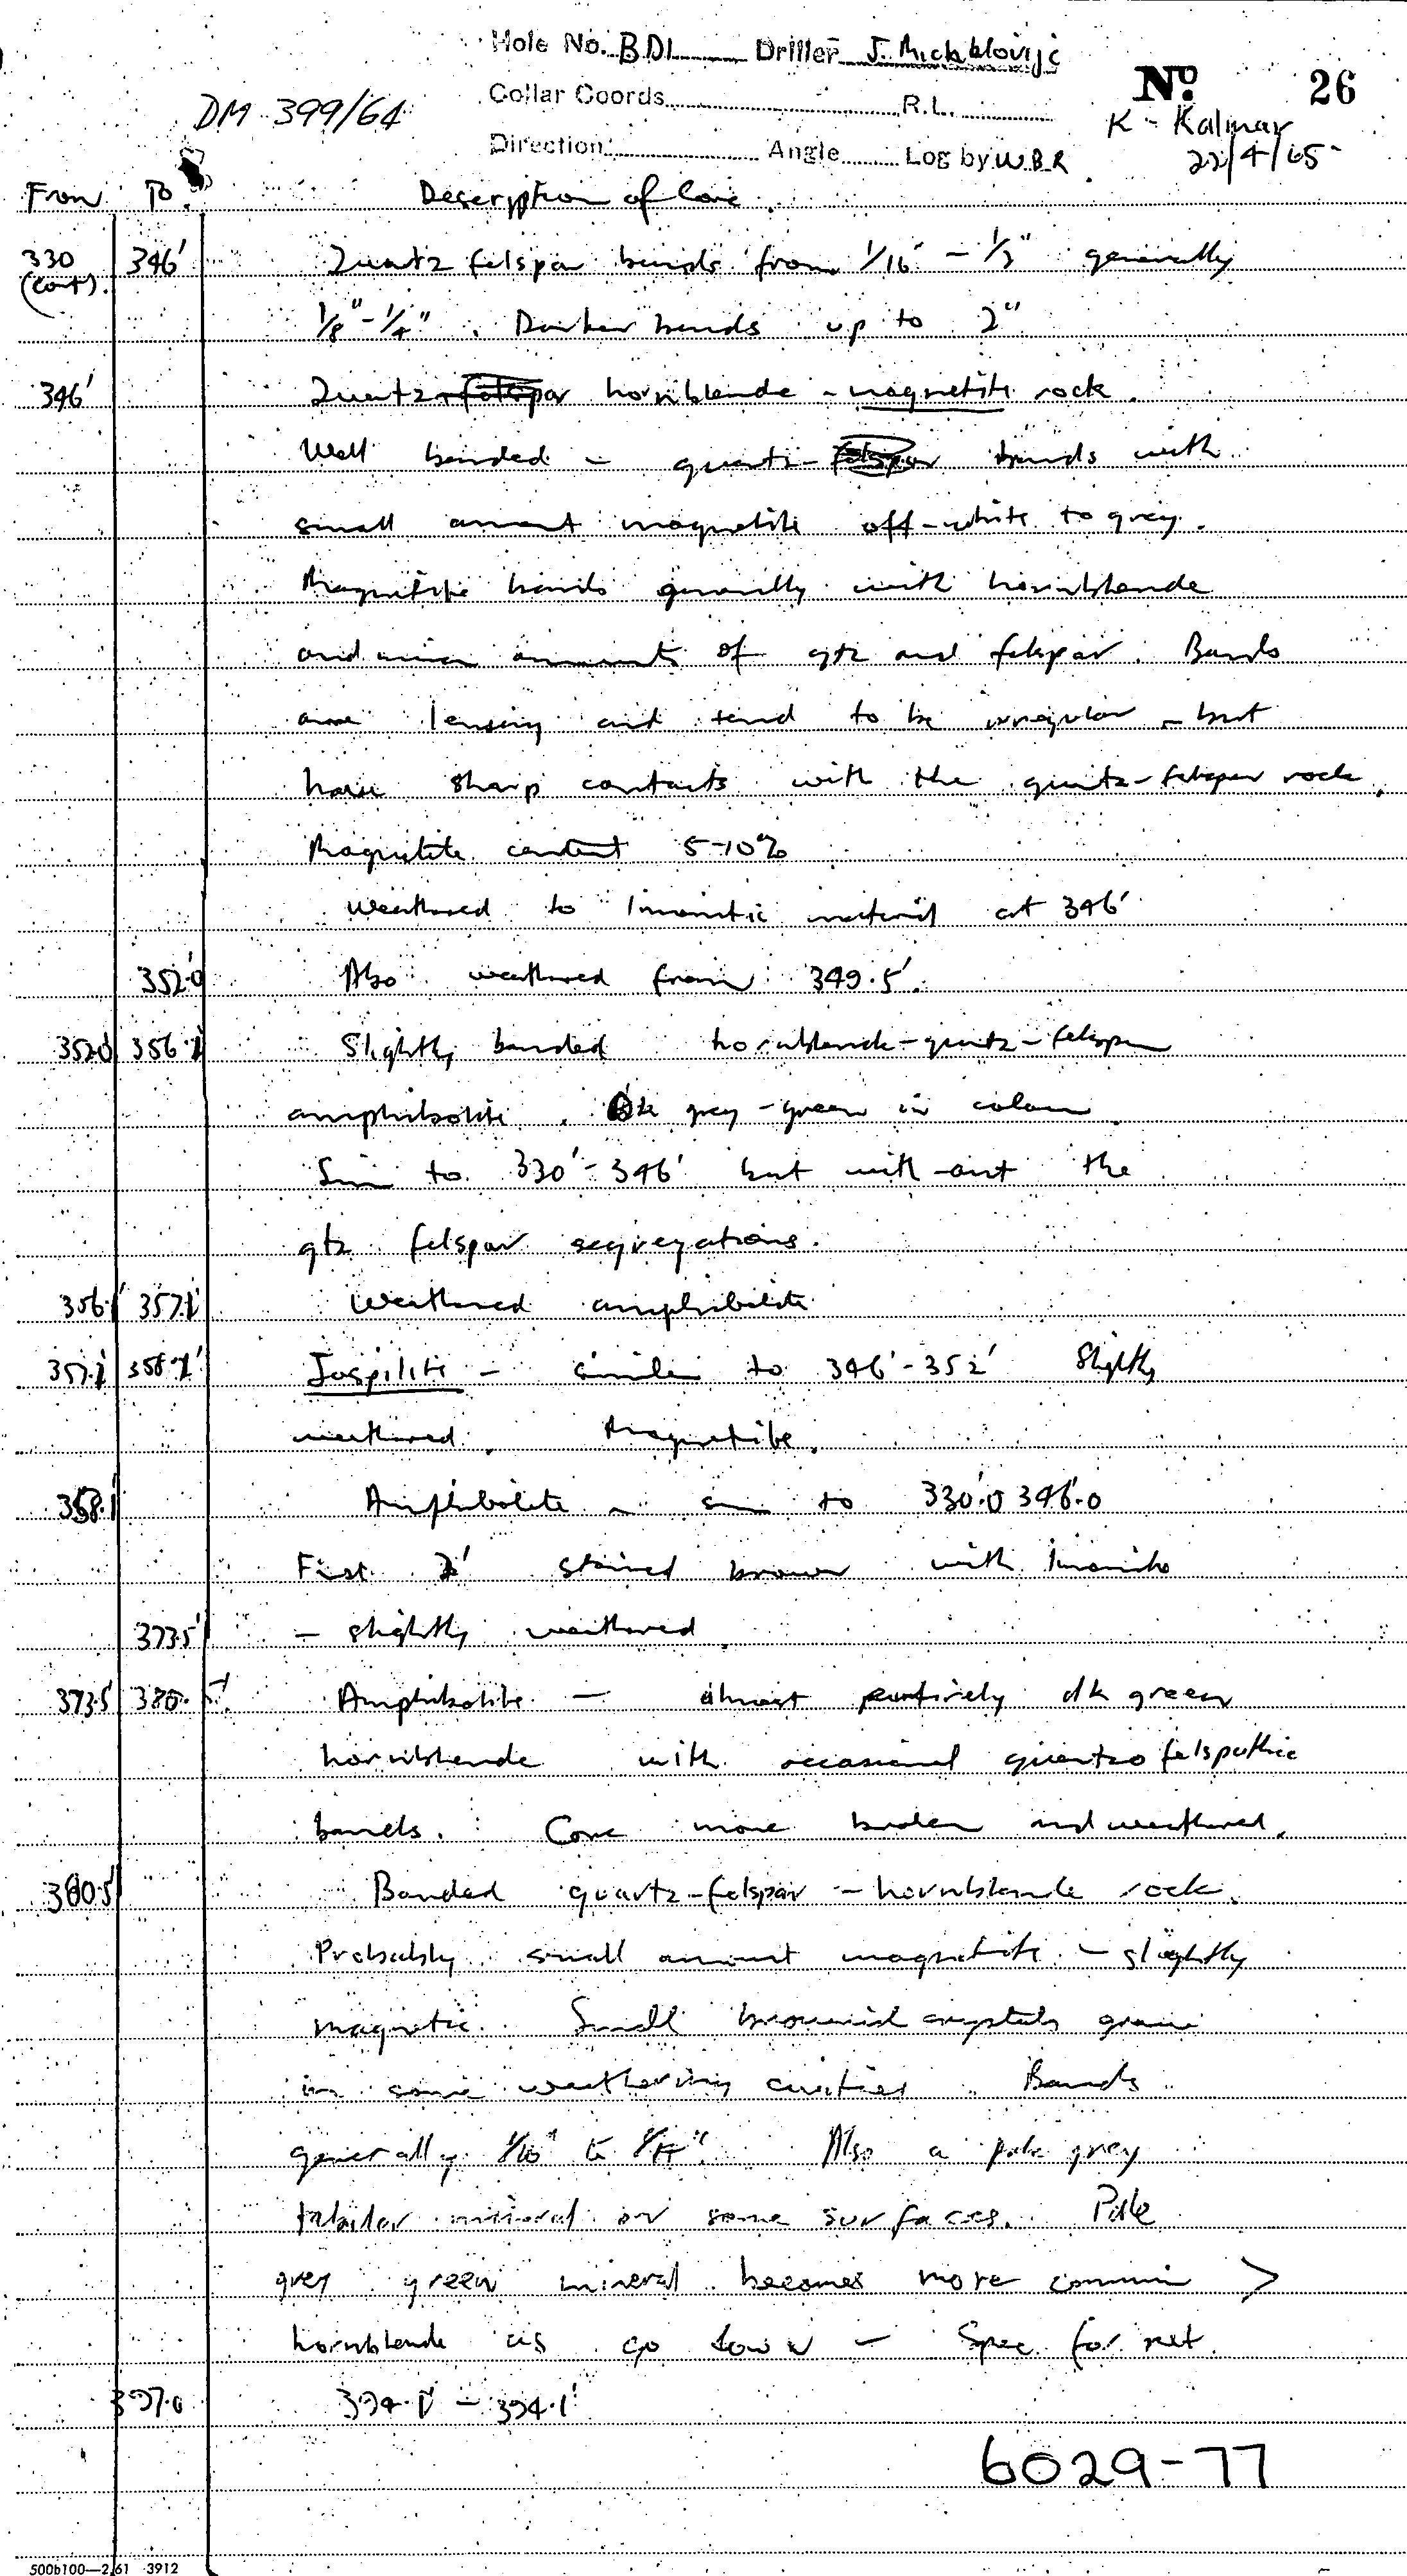 Hole No. BD1 Driller J.
No. 26
DM 399/64
Collar Coords. R.L.
K - Kalmar
Direction: Angle Log by W.B.R.
22/4/65
From To. Description of Core.
330 (cont). 346' Quartz felspar bands from 1/16" - 1/3" generally
1/8" - 1/4". Darker bands up to 2"
346' Quartz hornblende - magnetite rock.
Well banded - quartz bands with
small amount magnetite off-white to grey.
Magnetite bands generally with hornblende
and minor amounts of qtz and felspar. Bands
are lensing and tend to be irregular - but
have sharp contacts with the quartz-felspar rock.
Magnetite content 5-10%
Weathered to limonitic material at 346'
352.0 Also weathered from 349.5'.
352.0 356.1' Slightly banded hornblende-quartz-felspar
amphibolite. Dk grey-green in colour
Sim to 330'-346' but with-out the
qtz felspar segregations.
356.1' 357.1' Weathered amphibolite
357.1' 358.1' Jaspilite - similar to 346'-352' Slightly
weathered. Magnetite.
358.1' Amphibolite - sim to 330.0 346.0
First 2' stained brown with limonite
373.5' - slightly weathered.
373.5' 380.5'. Amphibolite - almost entirely dk green
hornblende with occasional quartzo felspathic
bands. Core more broken and weathered.
380.5' Banded quartz-felspar-hornblende rock.
Probably small amount magnetite - slightly
magnetic. Small brownish crystals grown
in some weathering cavities. Bands
generally 1/16" to Also a pale grey
tabular mineral on some surfaces. Pale
grey green mineral becomes more common >
hornblende as go down - Spec. for pet.
397.0 394.0' - 394.1'
6029-77
500b100—2/61 3912